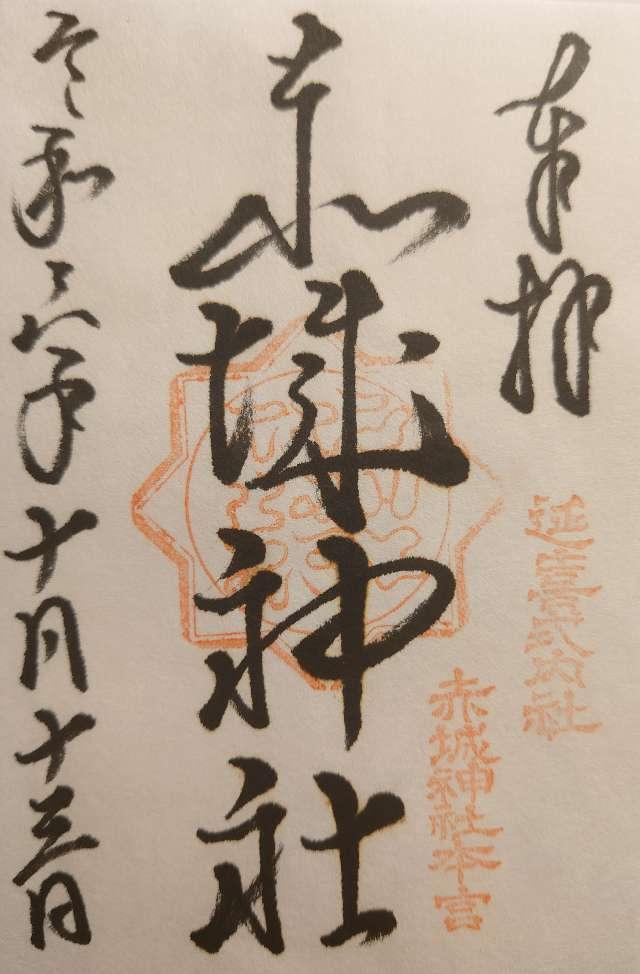 奉拝
延喜式内社
赤城神社本宮
赤城神社
令和六年十月十三日